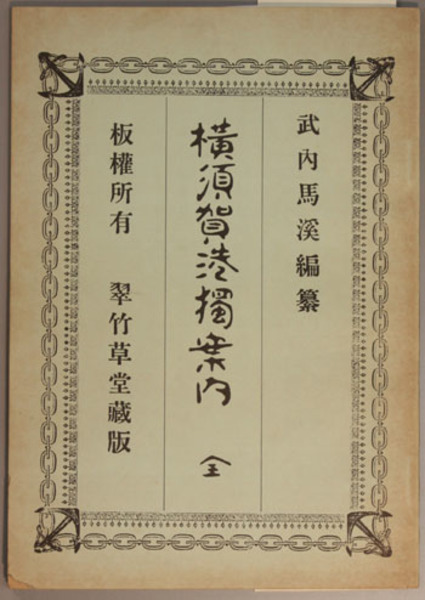 武內馬溪編纂
橫須賀港獨案内 全
板權所有 翠竹草堂藏版